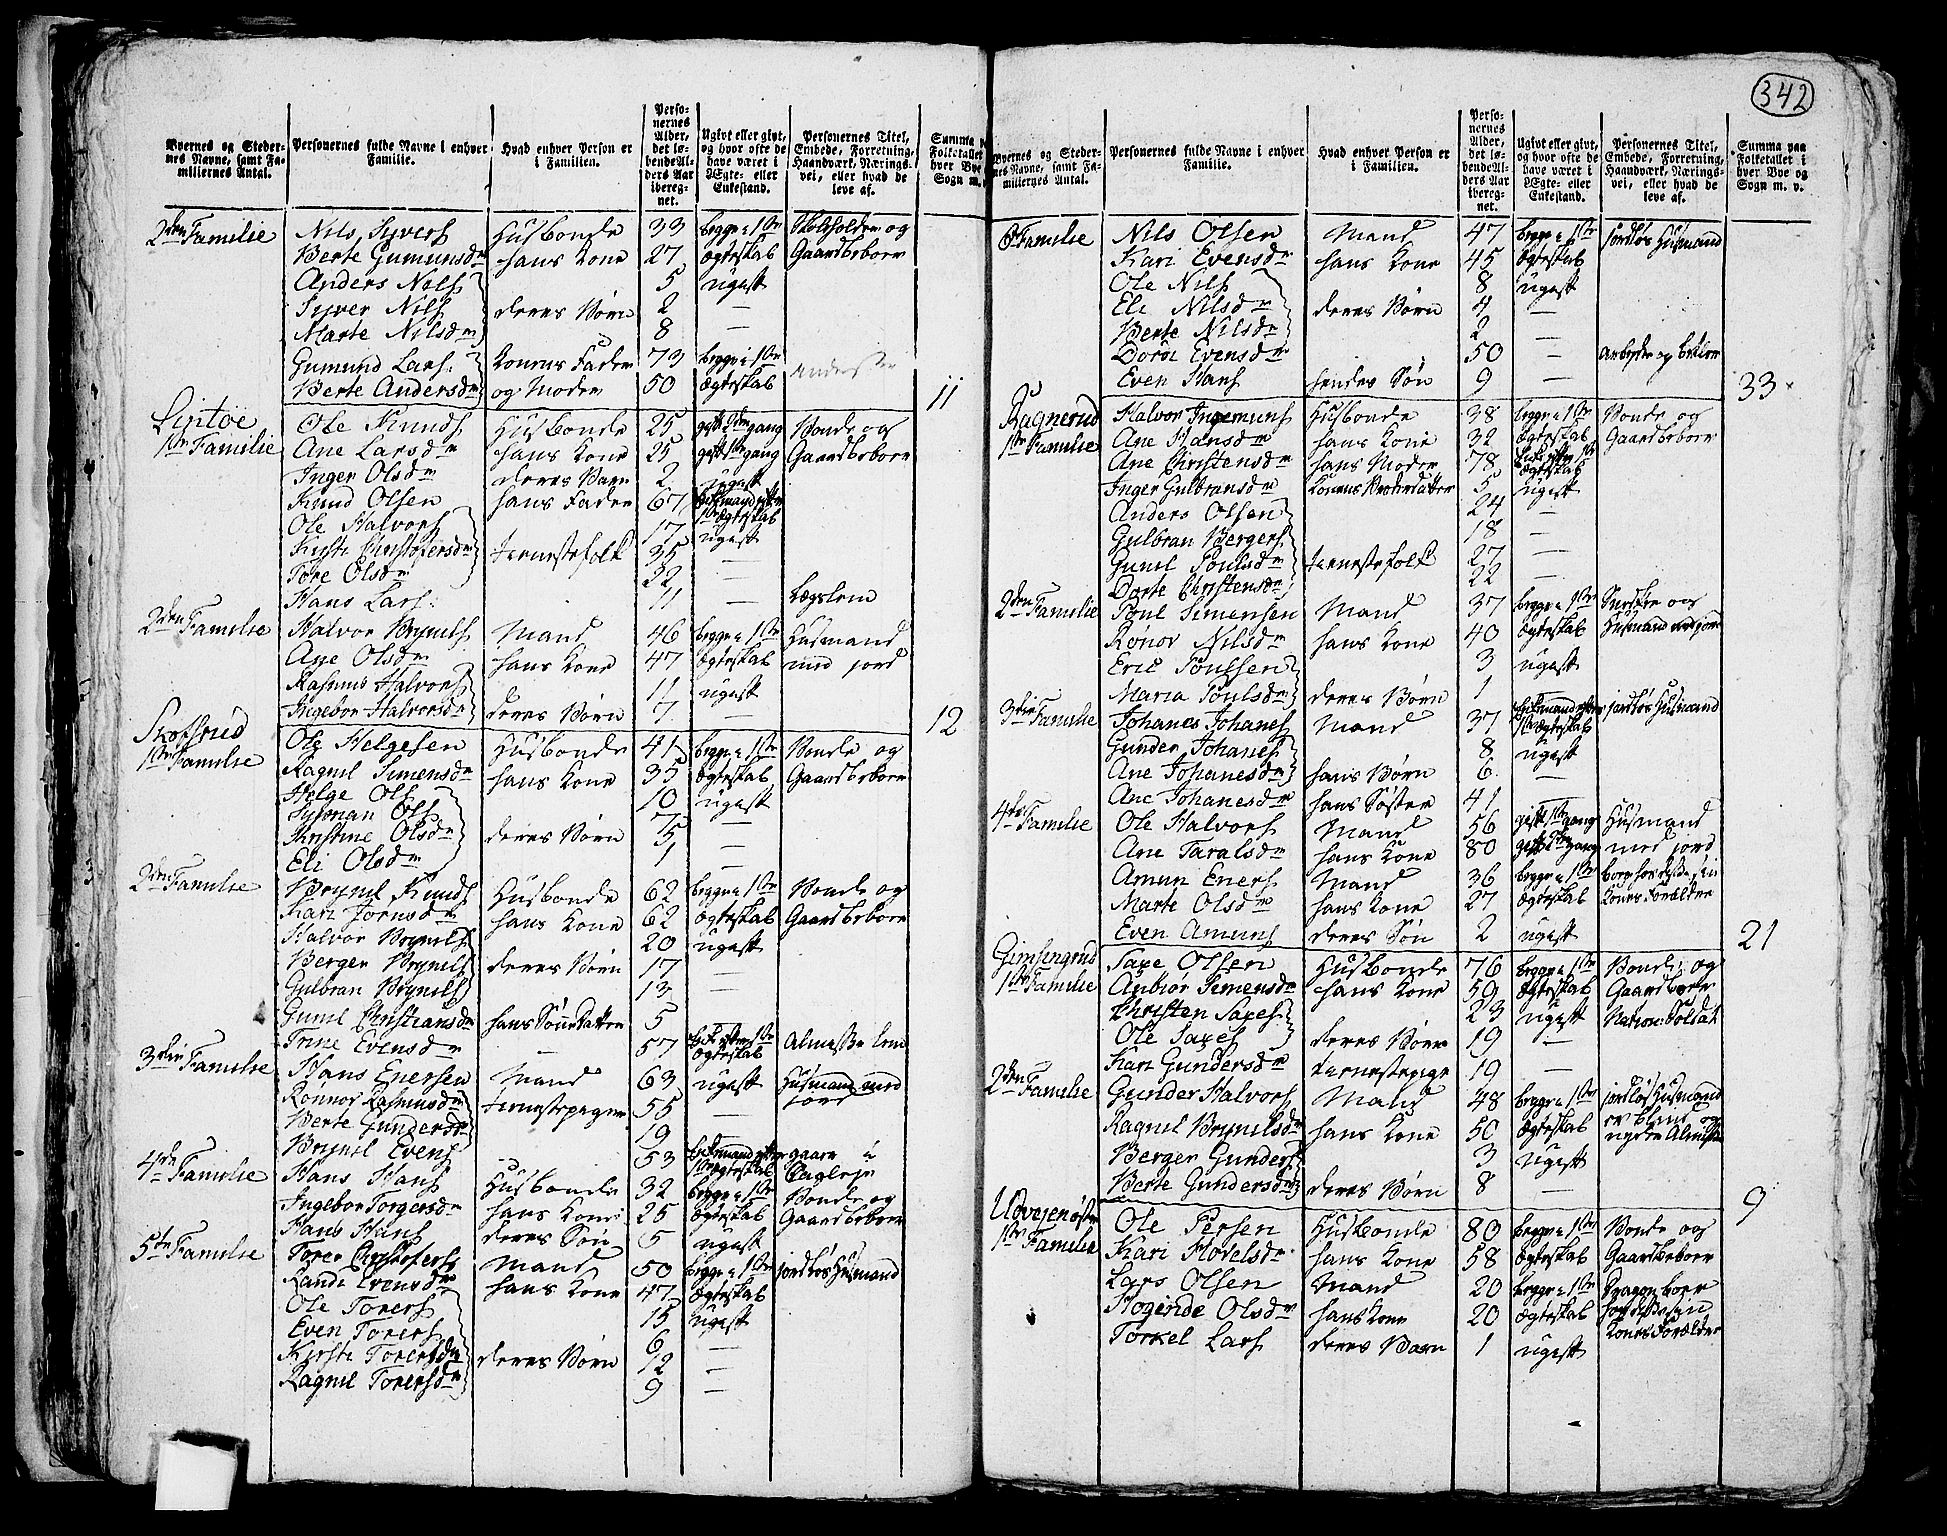 342
Byernes og Stedernes Navne, samt Familiernes Antal.
Personernes fulde Navne i enhver Familie.
Hvad enhver Person er i Familien.
Personernes Alder, det løbende Alders Aar iberegnet.
Ugivt eller givt, og hvor ofte de have været i Ægte- eller Enkestand.
Personernes Titel, Embede, Forretning, Haandværk, Næringsvei, eller hvad de leve af.
Summa Folketallet hver Bye Sogn m.
2den Familie Nils Syvers Husbonde 33 begge i 1ste og
Berte Gumunsdr hans Kone 27 Ægteskab Gaardbeboer
Anders Nils 5 ugift
Syver Nils deres Børn 2 —
Marte Nilsdr 8 —
Gumund Lars: Konens Fader 73 begge i 1ste
Berte Andersdr og Moder 50 Ægteskab 11
Lintoe Ole Knuds Husbonde 25 gift 2den gang Bonde og
1ste Familie Ane Larsdr hans Kone 25 gift 1ste gang Gaardbeboer
Inger Olsdr deres Barn 2 ugift
Knud Olsen hans Fader 67 Enkemand efter 1ste Ægteskab
Ole Halvors 17 ugift
Kirsti Christofersdr Tienestefolk 35 —
Tore Olsdr 32 —
Hans Lars: 11 — Lægslem
2den Familie Halvor Brynils Mand 46 begge i 1ste Husmand
Ane Olsdr hans Kone 47 Ægteskab med jord
Rasmus Halvors 11 ugift
Ingebor Halvorsdr deres Børn 7 — 12
Skofsrud Ole Helgesen Husbonde 41 begge i 1ste Bonde og
1ste Familie Ragnil Simensdr hans Kone 35 Ægteskab Gaardbeboer
Helge Ols 10 ugift
Ols 7 —
Christine Olsdr deres Børn 5 —
Eli Olsdr 1 —
2den Familie Brynil Knuds Husbonde 62 begge i 1ste Bonde og
Kari Jornsdr hans Kone 62 Ægteskab Gaardbeboer
Halvor Brynils 20 ugift
Berger Brynils deres Børn 17 —
Gulbran Brynils 13 —
Gunil Christiansdr hans Sønnedatter 5
Trine Evensdr — 57 Enke efter 1ste Ægteskab Almisse lem
3die Familie Hans Enersen Mand 63 ugift Husmand med jord
Ronnov Rasmusdr Tienestepiger 55 —
Berte Gundersdr 19 —
Brynil Evens 53 Enkemand efter 1ste Ægteskab
4de Familie Hans Hans Husbonde 32 begge i 1ste Bonde og
Ingebor Torgersdr hans Kone 25 Ægteskab Gaardbeboer
Hans Hans deres Søn 5 ugift
5te Familie Torer Christofers Mand 50 begge i 1ste jordløs Husmand
Randi Evensdr hans Kone 47 Ægteskab
Ole Torers 15 ugift
Even Torers 6 —
Kirsti Torersdr deres Børn 12 —
Ragnil Torersdr 9 —
Byernes og Stedernes Navne, samt Familiernes Antal.
Personernes fulde Navne i enhver Familie.
Hvad enhver Person er i Familien.
Personernes Alder, det løbende Alders Aar iberegnet.
Ugivt eller givt, og hvor ofte de have været i Ægte- eller Enkestand.
Personernes Titel, Embede, Forretning, Haandværk, Næringsvei, eller hvad de leve af.
Summa paa Folketallet i hver Bye og Sogn m. v.
6te Familie Nils Olsen Mand 47 begge i 1ste jordløs Husmand
Kari Evensdr hans Kone 45 Ægteskab
Ole Nils 8 ugift
Eli Nilsdr deres Børn 4 —
Berte Nilsdr 2
Dorte Evensdr 50 —
Even Hans hendes Søn 9 — 33
Rugnerud Halvor Ingemuns Husbonde 38 begge i 1ste Bonde og
1ste Familie Ane Hansdr hans Kone 32 Ægteskab Gaardbeboer
Ane Christensdr hans Moder 78 Enke efter 1ste Ægteskab
Inger Gulbransdr Konens Broderdatter 5 ugift
Anders Olsen 24 —
Gulbran Bergers 18
Gunil Poulsdr Tienestefolk 27 —
Dorte Christensdr 22 —
2den Familie Poul Simensen Mand 37 begge i 1ste og
Ronov Nilsdr hans Kone 40 Ægteskab Husmand med jord
Eric Poulsen 3 ugift
Maria Poulsdr deres Børn 1
3die Familie Johanes Johanes Mand 37 Enkemand efter 1ste Ægteskab jordløs Husmand
Gunder Johanes 8 ugift
Ane Johanesdr hans Børn 6 —
Ane Johanesdr hans Søster 41 —
4de Familie Ole Halvors Mand 56 gift 1ste gang Husmand
Ane Taralsdr hans Kone 80 gift 2den gang med jord
Amun Eners Mand 36 begge i 1ste
Marte Olsdr hans Kone 27 Ægteskab Kones Forældre
Even Amuns deres Søn 2 ugift 21
Gimsengrud Saxe Olsen Husbonde 76 begge i 1ste Bonde og
1ste Familie Anbior Simensdr hans Kone 59 Ægteskab Gaardbeboer
Christen Saxes 23 ugift Nation: Soldat
Ole Saxes deres Børn 19 —
Kari Gundersdr Tienestepige 19 —
2den Familie Gunder Halvors Mand 48 begge i 1ste jordløs Husmand
Ragnil Brynilsdr hans Kone 50 Ægteskab er blind og nyder Almisse
Berger Gunders 3 ugift
Berte Gundersdr deres Børn 8 — 9
Ole Persen Husbonde 80 begge i 1ste Bonde og
1ste Familie Kari Hovelsdr hans Kone 58 Ægteskab Gaardbeboer
Lars Olsen Mand 20 begge i 1ste Dragon
Olsdr hans Kone 20 Ægteskab Kones Forælder
Torkel Lars deres Barn 1 ugift